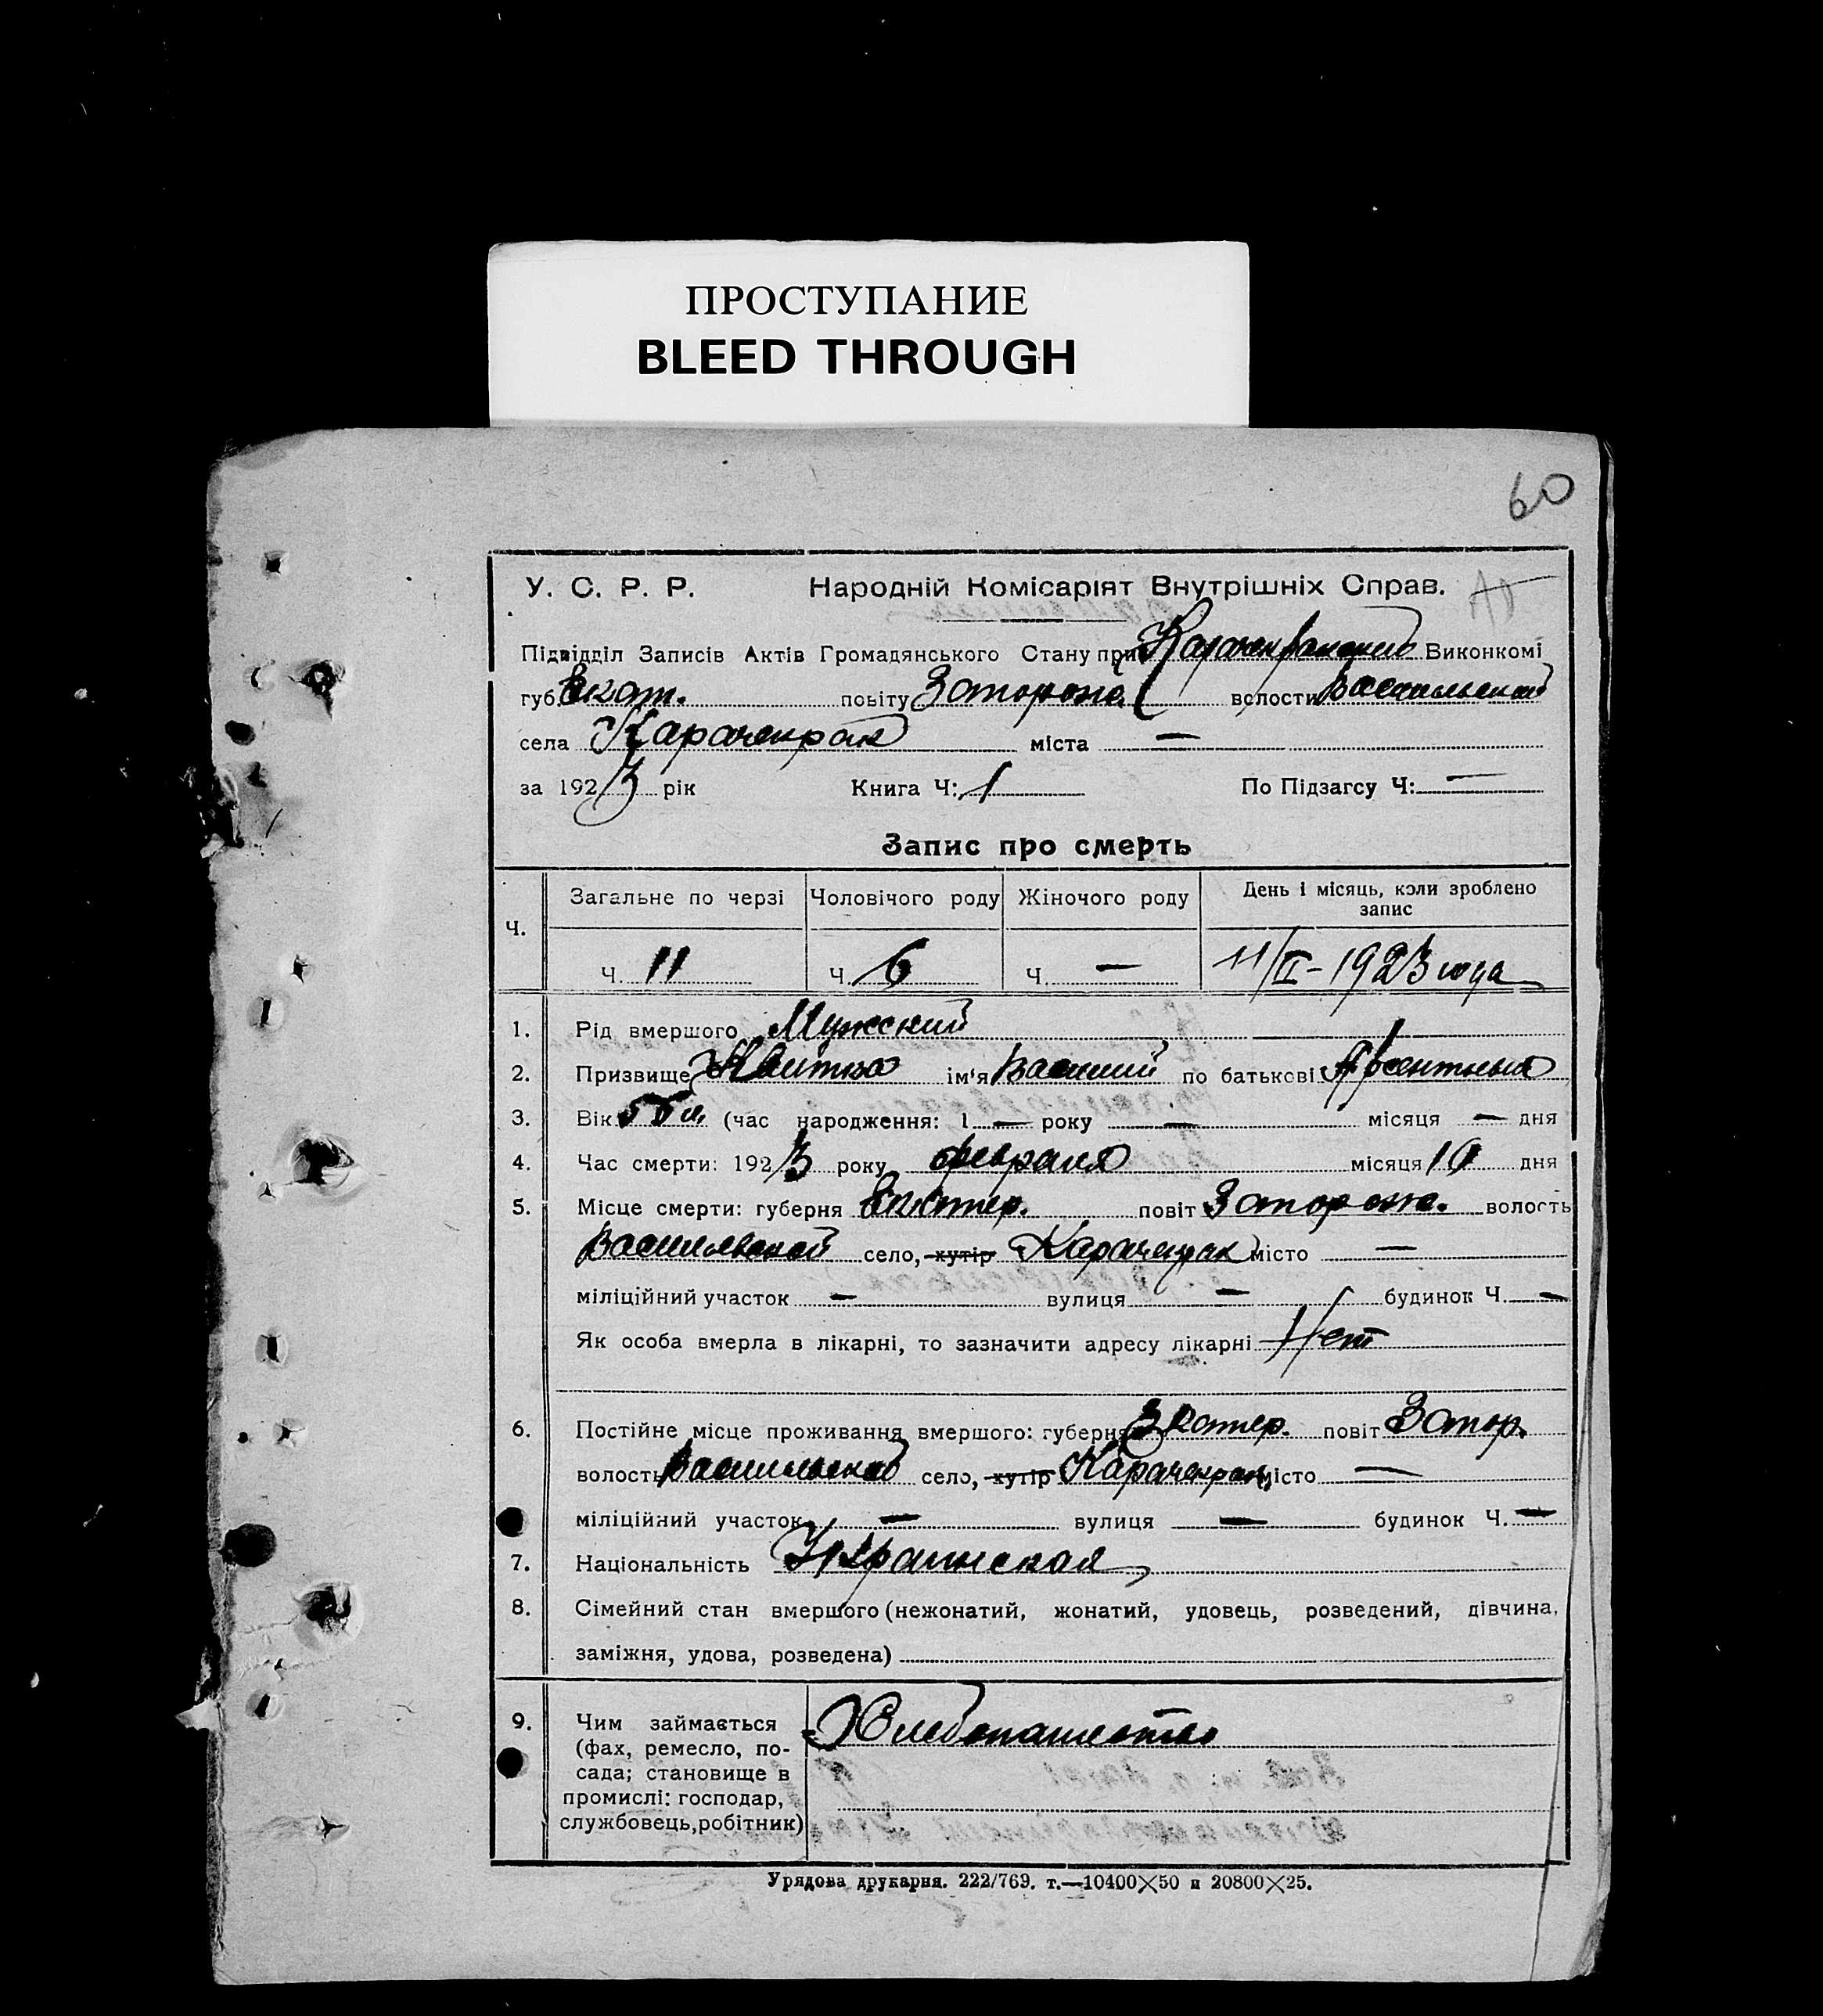 ПРОСТУПАНИЕ
BLEED THROUGH
60
У. С. Р. Р. Народній Комісаріят Внутрішніх Справ.
Підвідділ Записів Актів Громадянського Стану при Виконкомі
губ. Екат. повіту Запорож. волости Васильевской
села Карачекрак міста —
за 1923 рік Книга Ч: 1 По Підзагсу Ч: —
Запис про смерть
Ч. Загальне по черзі Чоловічого роду Жіночого роду День і місяць, коли зроблено запис
Ч. 11 Ч. 6 Ч. — 11/II-1923 года
1. Рід вмершого Мужский
2. Призвище Квитка ім'я Василий по батькові
3. Вік 55 л. (час народження: 1 — року — місяця — дня
4. Час смерти: 1923 року февраля місяця 10 дня
5. Місце смерти: губерня Екатер. повіт Запорож. волость
Васильевской село, хутір Карачекрак місто —
міліційний участок — вулиця — будинок Ч. —
Як особа вмерла в лікарні, то зазначити адресу лікарні Нет
6. Постійне місце проживання вмершого: губерня Екатер. повіт Запор.
волость Васильевской село, хутір Карачекрак місто —
міліційний участок — вулиця — будинок Ч. —
7. Національність Украинская
8. Сімейний стан вмершого (нежонатий, жонатий, удовець, розведений, дівчина,
заміжня, удова, розведена)
9. Чим займається Хлебопашество
(фах, ремесло, по-
сада; становище в
промислі: господар,
службовець, робітник)
Урядова друкарня. 222/769. т.—10400×50 и 20800×25.